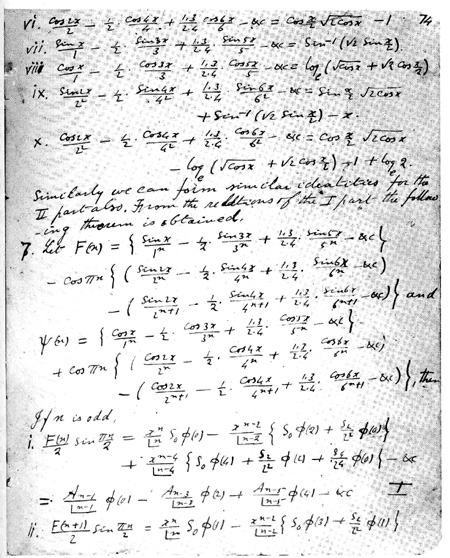 vi. cos2x/2 - 1/2·cos4x/4 + 1.3/2.4·cos6x/6 - &c = cos x/2 √2cosx - 1. 74
vii. sinx/1 - 1/2·sin3x/3 + 1.3/2.4·sin5x/5 - &c = Sin⁻¹(√2 sin x/2).
viii. cosx/1 - 1/2·cos3x/3 + 1.3/2.4·cos5x/5 - &c = log_e(√cosx + √2 cos x/2)
ix. sin2x/2² - 1/2·sin4x/4² + 1.3/2.4·sin6x/6² - &c = sin x/2 √2cosx
+ sin⁻¹(√2 sin x/2) - x.
x. cos2x/2² - 1/2·cos4x/4² + 1.3/2.4·cos6x/6² - &c = cos x/2 √2cosx
- log_e(√cosx + √2 cos x/2) - 1 + log_e 2.
Similarly we can form similar identities for the
II part also. From the relations of the I part the follow
-ing theorem is obtained.
7. Let F(n) = { sinx/1ⁿ - 1/2·sin3x/3ⁿ + 1.3/2.4·sin5x/5ⁿ - &c }
- cos πn { ( sin2x/2ⁿ - 1/2·sin4x/4ⁿ + 1.3/2.4·sin6x/6ⁿ - &c )
- ( sin2x/2ⁿ⁺¹ - 1/2·sin4x/4ⁿ⁺¹ + 1.3/2.4·sin6x/6ⁿ⁺¹ - &c ) } and
ψ(n) = { cosx/1ⁿ - 1/2·cos3x/3ⁿ + 1.3/2.4·cos5x/5ⁿ - &c }
+ cos πn { ( cos2x/2ⁿ - 1/2·cos4x/4ⁿ + 1.3/2.4·cos6x/6ⁿ - &c )
- ( cos2x/2ⁿ⁺¹ - 1/2·cos4x/4ⁿ⁺¹ + 1.3/2.4·cos6x/6ⁿ⁺¹ - &c ) }, then
If n is odd,
i. F(n)/2 sin πn/2 = xⁿ/|n S₀φ(0) - xⁿ⁻²/|n-2 { S₀φ(2) + S₂/2² φ(0) }
+ xⁿ⁻⁴/|n-4 { S₀φ(4) + S₂/2² φ(2) + S₄/2⁴ φ(0) } - &c
= Aₙ₋₁/|n-1 φ(0) - Aₙ₋₃/|n-3 φ(2) + Aₙ₋₅/|n-5 φ(4) - &c I
ii. F(n+1)/2 sin πn/2 = xⁿ/|n S₀φ(1) - xⁿ⁻²/|n-2 { S₀φ(3) + S₂/2² φ(1) }